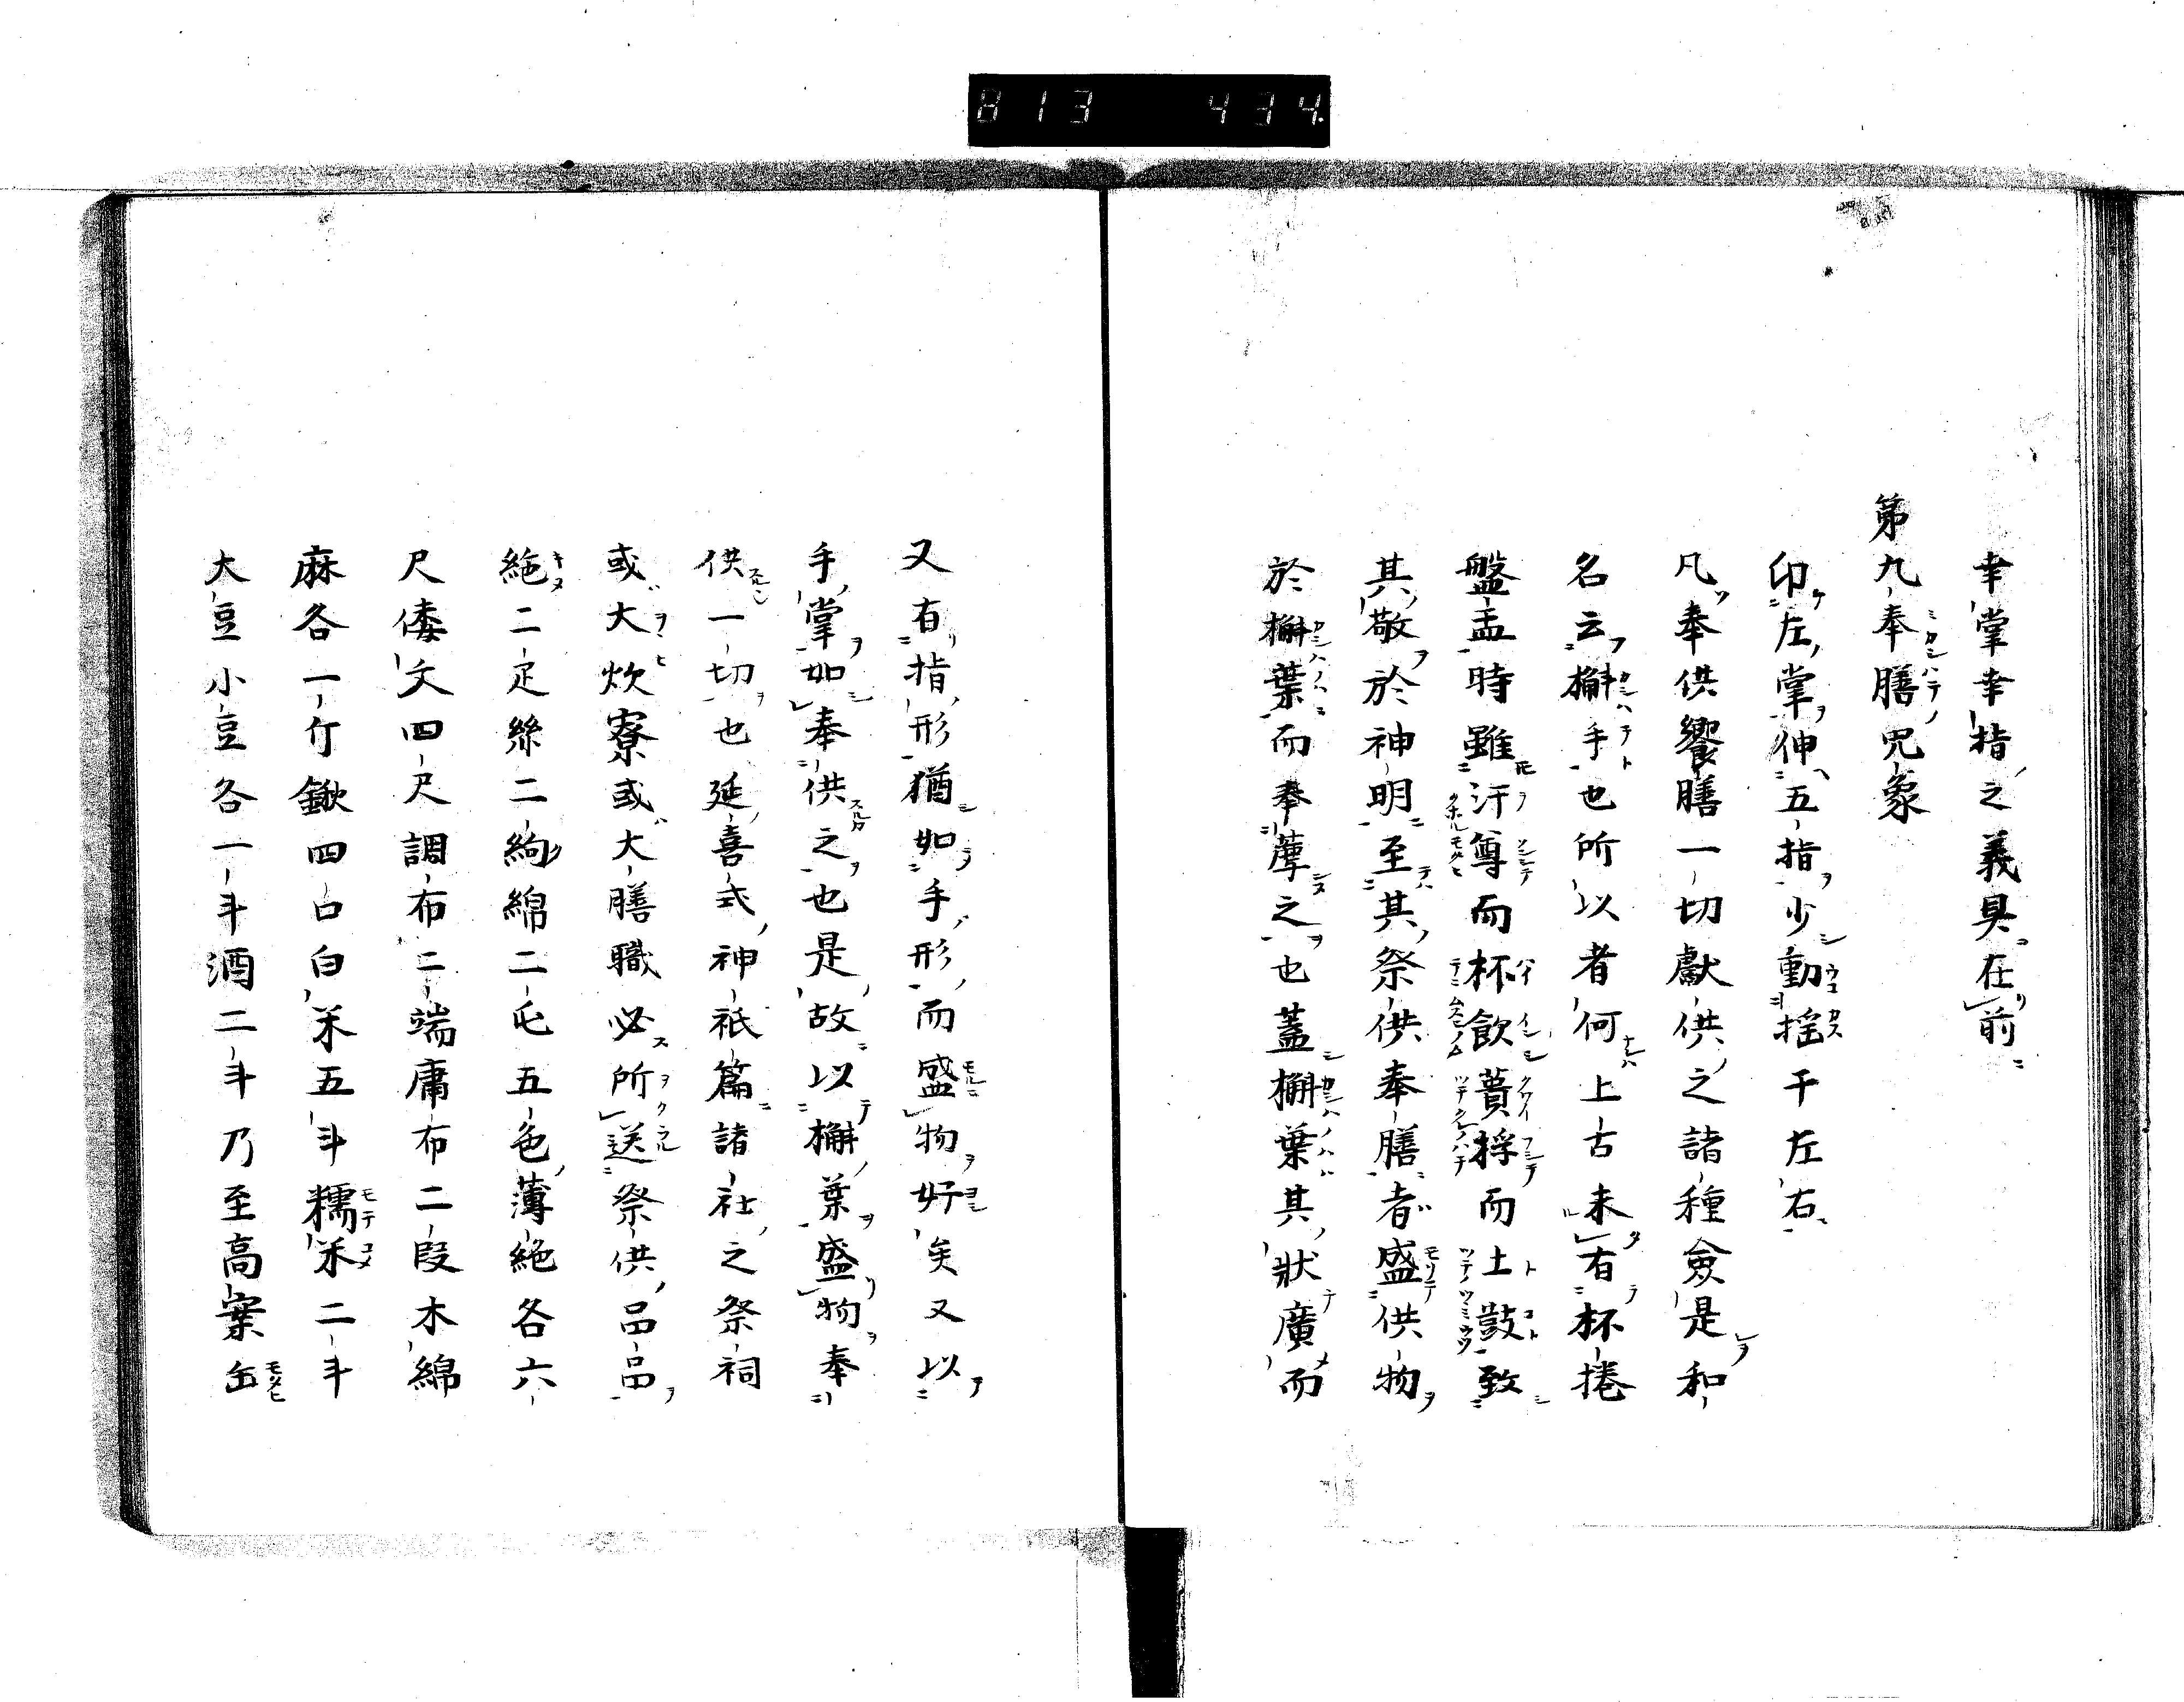 813 434.
幸掌幸指之義具在前
第九奉膳咒象
印左掌伸五指少動揺于左右
凡奉供饗膳一切獻供之諸種僉是和
名云槲手也所以者何上古未有杯捲
盤盂時雖汙尊而杯飲蕢桴而土鼓致
其敬於神明至其祭供奉膳者盛供物
於槲葉而奉薦之也蓋槲葉其狀廣而
又有指形猶如手形而盛物好矣又以
手掌如奉供之也是故以槲葉盛物奉
供一切也延喜式神祇篇諸社之祭祠
或大炊寮或大膳職必所送祭供品品
絁二疋絲二絇綿二屯五色薄絁各六
尺倭文四尺調布二端庸布二段木綿
麻各一斤鍬四口白米五斗糯米二斗
大豆小豆各一斗酒二斗乃至高案缶